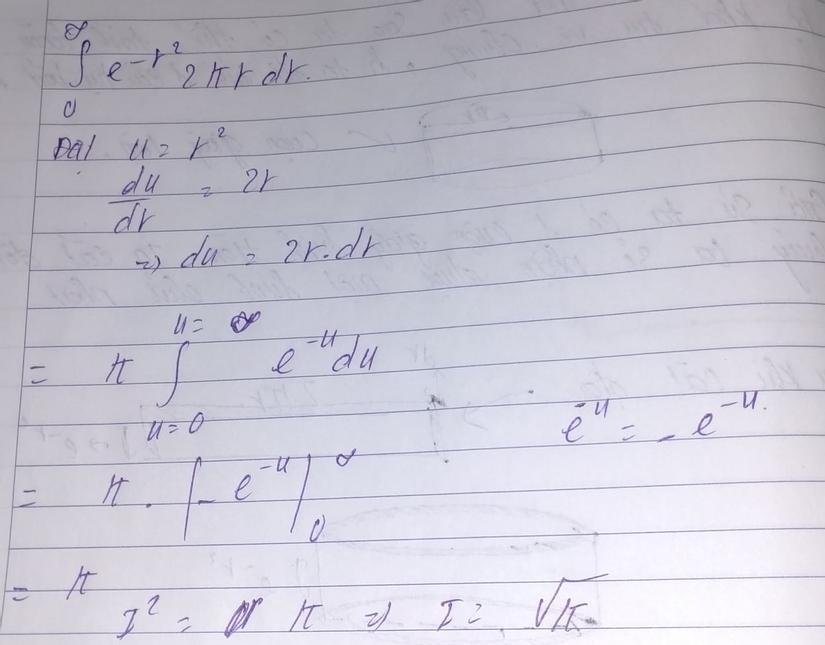 ∞
∫ e^{-r²} 2πr dr.
0
Đặt u = r²
du/dr = 2r
=> du = 2r.dr
= π ∫_{u=0}^{u=∞} e^{-u} du
e^{-u} = -e^{-u}.
= π . |-e^{-u}|_0^∞
= π
I² = π => I = √π.